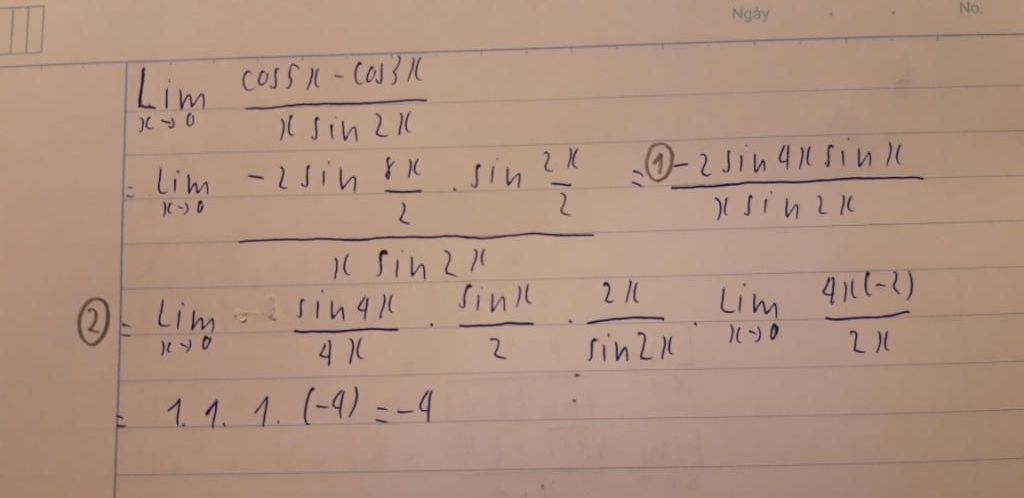 Ngày . . No.
Lim x→0 (cos5x - cos3x)/(x sin 2x)
= Lim x→0 (-2 sin 8x/2 . sin 2x/2)/(x sin 2x) = ① (-2 sin 4x sin x)/(x sin 2x)
② = Lim x→0 sin 4x/4x . sin x/2 . 2x/sin 2x . Lim x→0 4x(-2)/2x
= 1. 1. 1. (-4) = -4